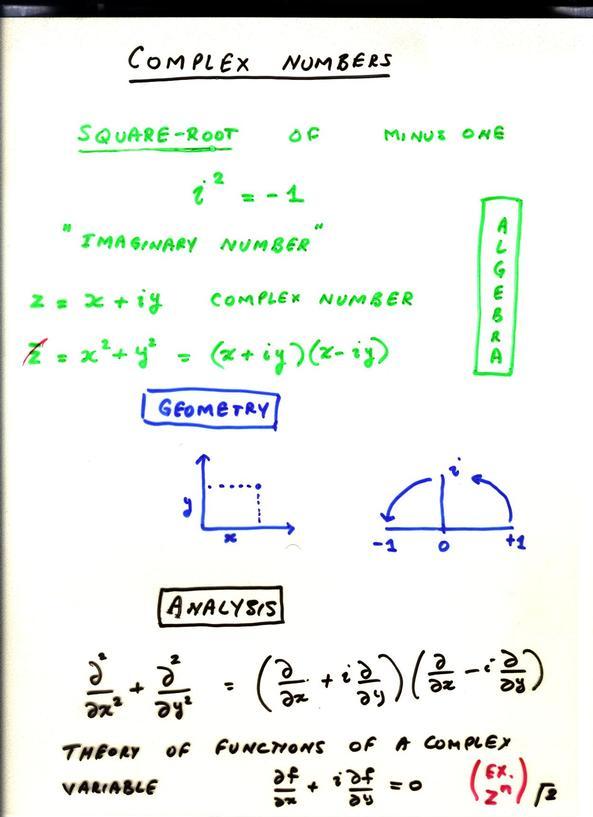 COMPLEX NUMBERS
SQUARE-ROOT OF MINUS ONE
i² = -1
"IMAGINARY NUMBER"
z = x + iy COMPLEX NUMBER
z = x² + y² = (x + iy)(x - iy)
ALGEBRA
GEOMETRY
y
x
i
-1 0 +1
ANALYSIS
∂²/∂x² + ∂²/∂y² = (∂/∂x + i ∂/∂y)(∂/∂x - i ∂/∂y)
THEORY OF FUNCTIONS OF A COMPLEX
VARIABLE ∂f/∂x + i ∂f/∂y = 0 (EX. zⁿ) √2